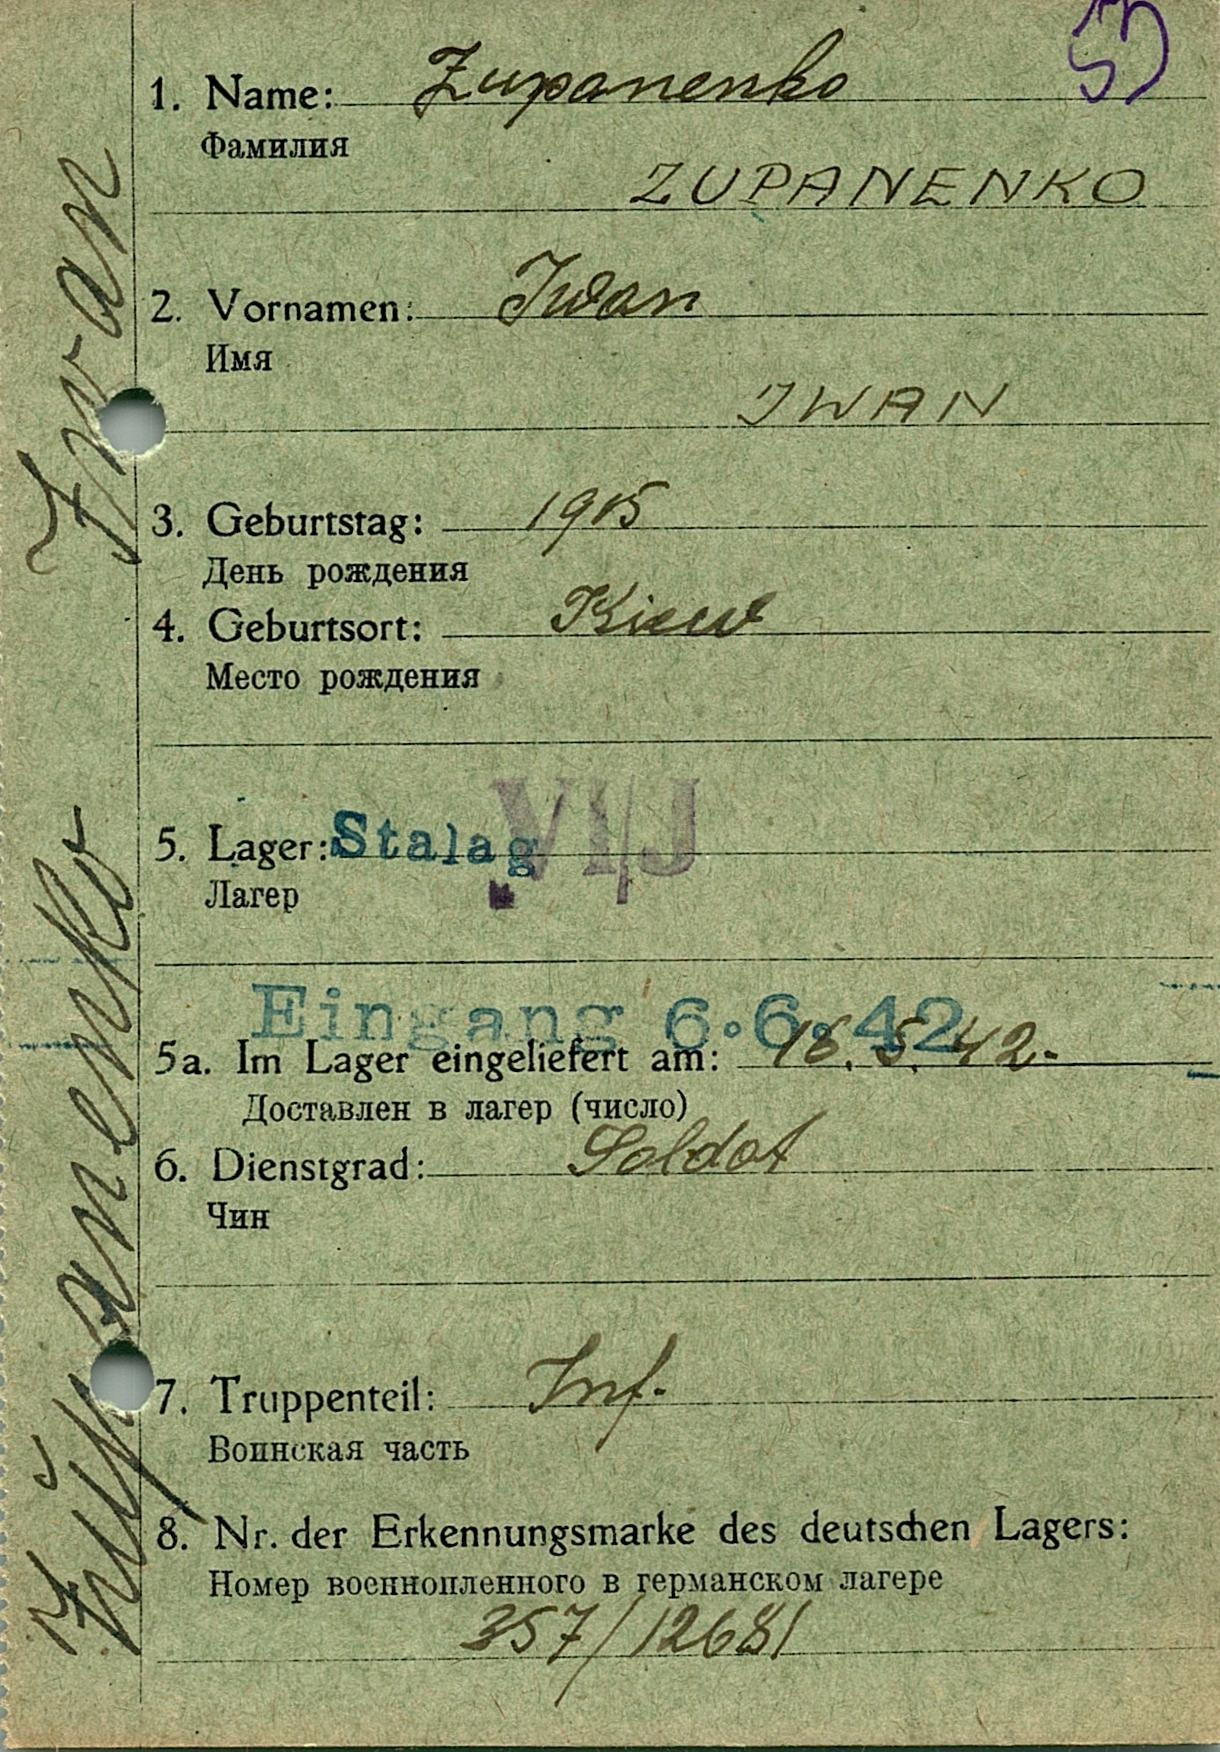 53
1. Name: Zupanenko
Фамилия
ZUPANENKO
2. Vornamen: Iwan
Имя
IWAN
3. Geburtstag: 1915
День рождения
4. Geburtsort: Kiew
Место рождения
5. Lager: Stalag VI/J
Лагер
Eingang 6.6.42
5a. Im Lager eingeliefert am: 16.5.42.
Доставлен в лагер (число)
6. Dienstgrad: Soldat
Чин
7. Truppenteil: Inf.
Воинская часть
8. Nr. der Erkennungsmarke des deutschen Lagers:
Номер военнопленного в германском лагере
357/12681
Županenko Iwan